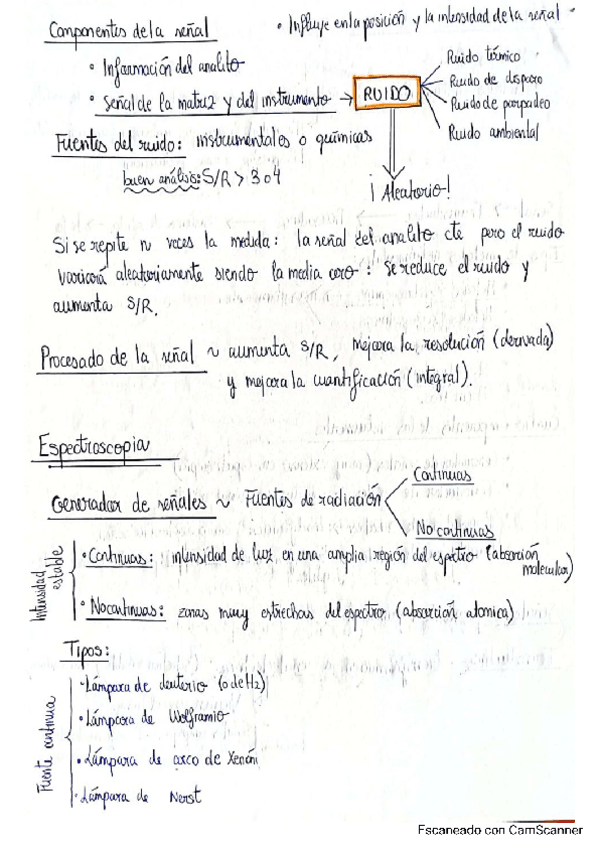 Componentes de la señal
• Influye en la posición y la intensidad de la señal
• Información del analito
• Señal de la matriz y del instrumento → RUIDO
Ruido térmico
Ruido de disparo
Ruido de parpadeo
Ruido ambiental
Fuentes del ruido: instrumentales o químicas
buen análisis: S/R > 3 o 4
¡Aleatorio!
Si se repite n veces la medida: la señal del analito cte pero el ruido
variará aleatoriamente siendo la media cero: se reduce el ruido y
aumenta S/R.
Procesado de la señal ~ aumenta S/R, mejora la resolución (derivada)
y mejora la cuantificación (integral).
Espectroscopia
Generador de señales ~ Fuentes de radiación
Continuas
No continuas
Intensidad estable
• Continuas: intensidad de luz en una amplia región del espectro (absorción
molecular)
• No continuas: zonas muy estrechas del espectro (absorción atomica)
Tipos:
Fuente continua
• Lámpara de deuterio (o de H2)
• Lámpara de Wolframio
• Lámpara de arco de Xenón
• Lámpara de Nerst
Escaneado con CamScanner